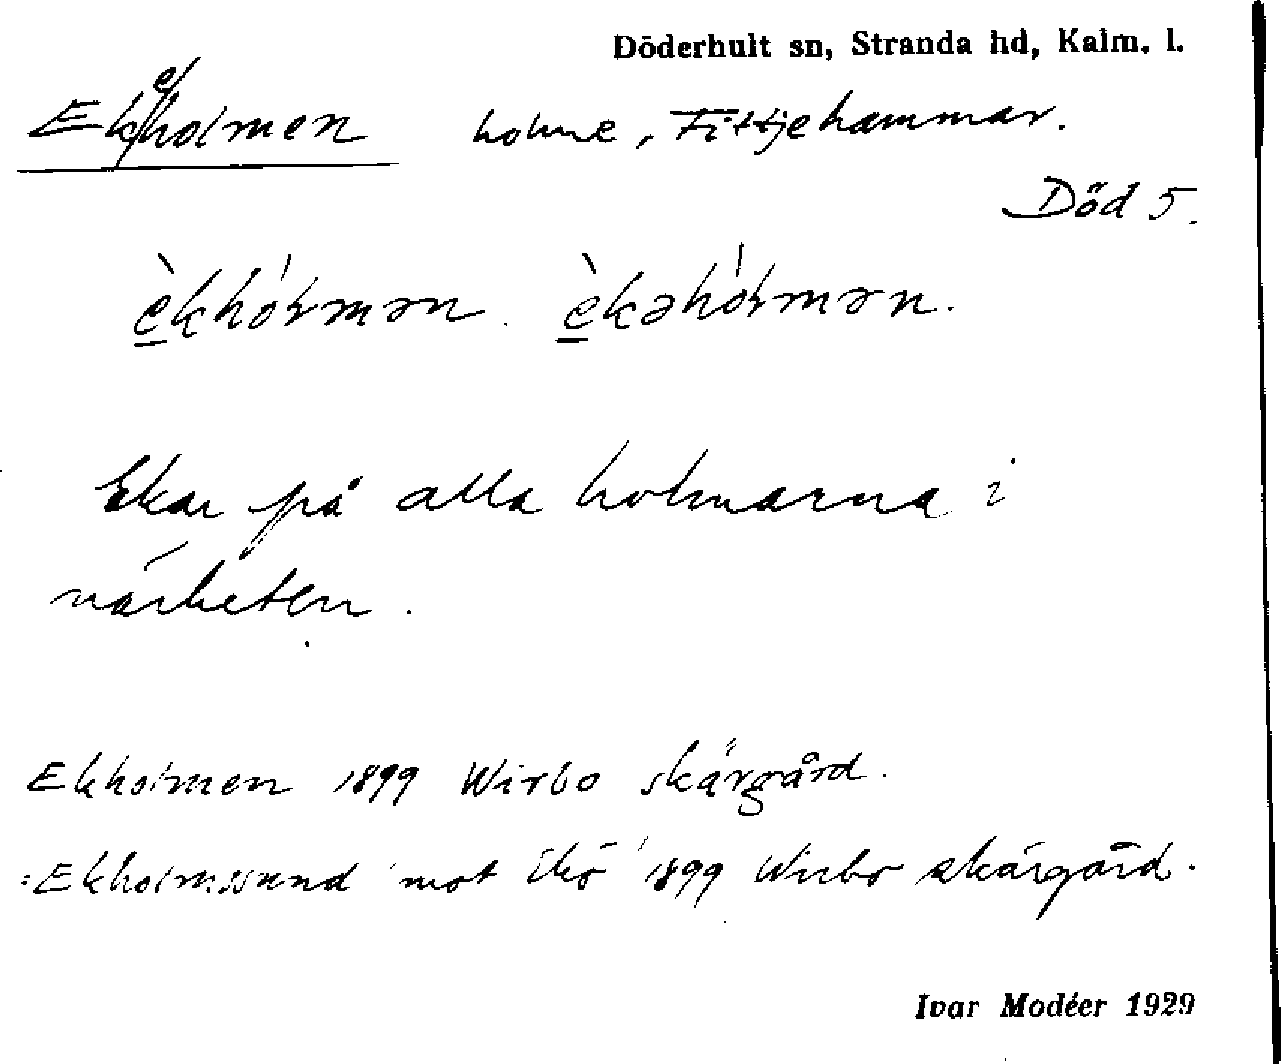 Döderhult sn, Stranda hd, Kalm. l.
Ekeholmen holme, Fittjehammar.
Död 5.
èkhólmən. èkəhólmən.
Ekar på alla holmarna i
närheten.
Ekholmen 1899 Wirbo skärgård.
Ekholmssund mot Ekö 1899 Wirbo skärgård.
Ivar Modéer 1929